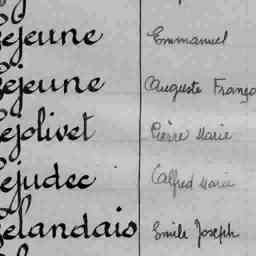 Lejeune Emmanuel
Lejeune Auguste Franço
Lejolivet Pierre Marie
Lejudec Alfred Marie
Lelandais Emile Joseph